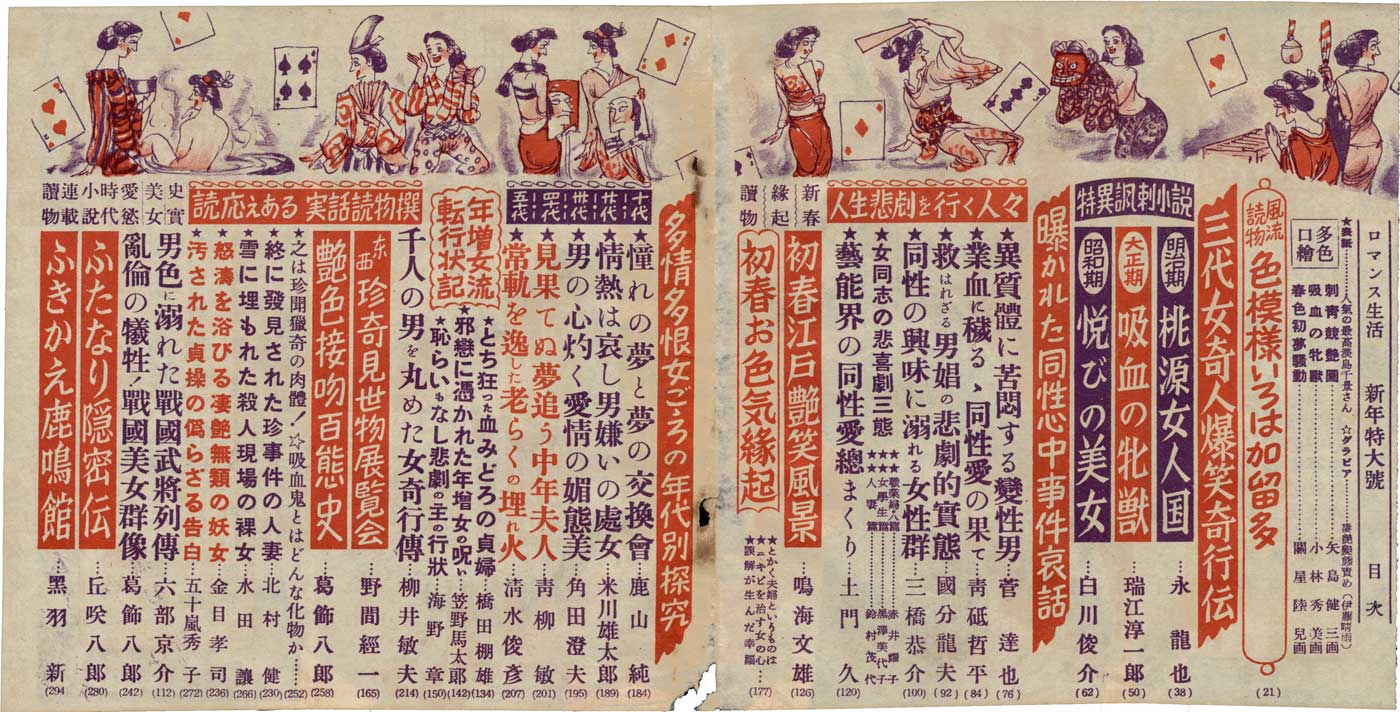 ロマンス生活 新年特大號 目次
★表紙……人氣の最高淡島千景さん ☆グラビア……凄艶變態責め(伊藤晴雨)
多色口繪
刺青競艶圖……矢島健三画
吸血の牝獸……小林秀美画
春色初夢騒動……關屋陸兒画
風流読物 色模様いろは加留多 (21)
三代女奇人爆笑奇行伝
特異諷刺小説
明治期 桃源女人国……永龍也 (38)
大正期 吸血の牝獣……瑞江淳一郎 (50)
昭和期 悦びの美女……白川俊介 (62)
曝かれた同性心中事件哀話
人生悲劇を行く人々
★異質體に苦悶する變性男……菅達也 (76)
★業血に穢るゝ同性愛の果て……靑砥哲平 (84)
★救はれざる男娼の悲劇的實態……國分龍夫 (92)
★同性の興味に溺れる女性群……三橋恭介 (100)
★女同志の悲喜劇三態
★職業婦人篇……赤井耀子
★女學生篇……黒澤美代子
★人妻篇……鈴村茂代
★藝能界の同性愛總まくり……土門久 (120)
新春緣起讀物
初春江戸艶笑風景……鳴海文雄 (126)
初春お色気縁起 (177)
★とかく夫婦というものは
★ニキビを治す女の心
★誤解が生んだ幸福……
多情多恨女ごころの年代別探究
十代 ★憧れの夢と夢の交換會……鹿山純 (184)
廿代 ★情熱は哀し男嫌いの處女……米川雄太郎 (189)
卅代 ★男の心灼く愛情の媚態美……角田澄夫 (195)
四代 ★見果てぬ夢追う中年夫人……靑柳敏 (201)
五代 ★常軌を逸した老らくの埋れ火……淸水俊彥 (207)
年増女流転行状記
★とち狂った血みどろの貞婦……橋田棚雄 (134)
★邪戀に憑かれた年增女の呪い……笠野馬太郎 (142)
★恥らいもなし悲劇の主の行狀……海野章 (150)
千人の男を丸めた女奇行傳……柳井敏夫 (214)
読応えある実話読物撰
东西 珍奇見世物展覧会……野間經一 (165)
艶色接吻百態史……葛飾八郎 (258)
★之は珍聞獵奇の肉體!☆吸血鬼とはどんな化物か…… (252)
★終に發見された珍事件の人妻……北村健 (230)
★雪に埋もれた殺人現場の裸女……水田讓 (266)
★怒濤を浴びる凄艶無類の妖女……金目孝司 (236)
★汚された貞操の僞らざる告白……五十嵐秀子 (272)
史實美女愛慾時代小說連載讀物
男色に溺れた戰國武將列傳……六部京介 (112)
亂倫の犧牲!戰國美女群像……葛飾八郎 (242)
ふたなり隠密伝……丘咲八郎 (280)
ふきかえ鹿鳴館……黑羽新 (294)